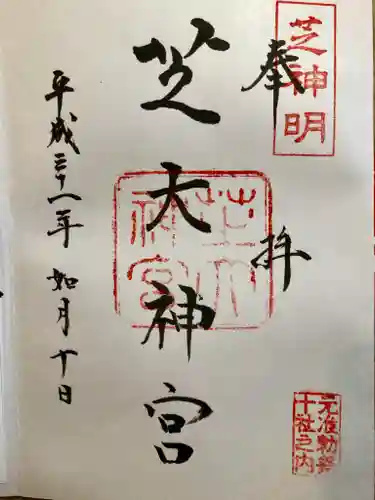 奉拝
芝神明
芝大神宮
芝大神宮
元准勅祭
十社之内
平成三十一年 如月十日